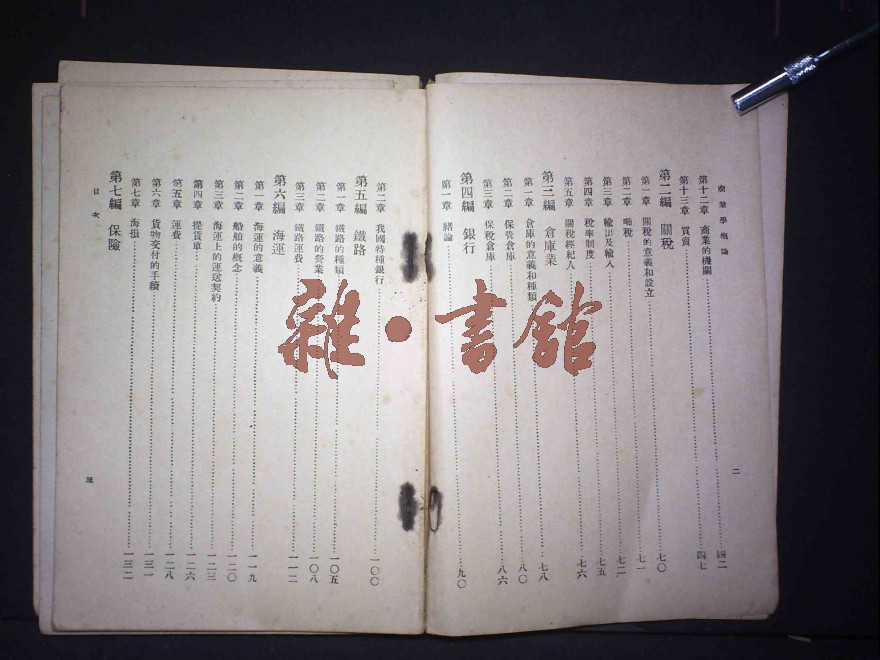 商業學概論
第十二章 商業的機關 四二
第十三章 買賣 四七
第二編 關稅
第一章 關稅的意義和設立 七〇
第二章 噸稅 七一
第三章 輸出及輸入 七二
第四章 稅率制度 七五
第五章 關稅經紀人 七六
第三編 倉庫業
第一章 倉庫的意義和種類 七八
第二章 保管倉庫 八〇
第三章 保稅倉庫 八六
第四編 銀行
第一章 緒論 九〇
二
第二章 我國特種銀行 一〇〇
第五編 鐵路
第一章 鐵路的種類 一〇五
第二章 鐵路的營業 一〇八
第三章 鐵路運費 一一二
第六編 海運
第一章 海運的意義 一一九
第二章 船舶的概念 一二〇
第三章 海運上的運送契約 一二三
第四章 提貨單 一二六
第五章 運費 一二八
第六章 貨物交付的手續 一三一
第七章 海損 一三二
第七編 保險
目次
三
雜·書館